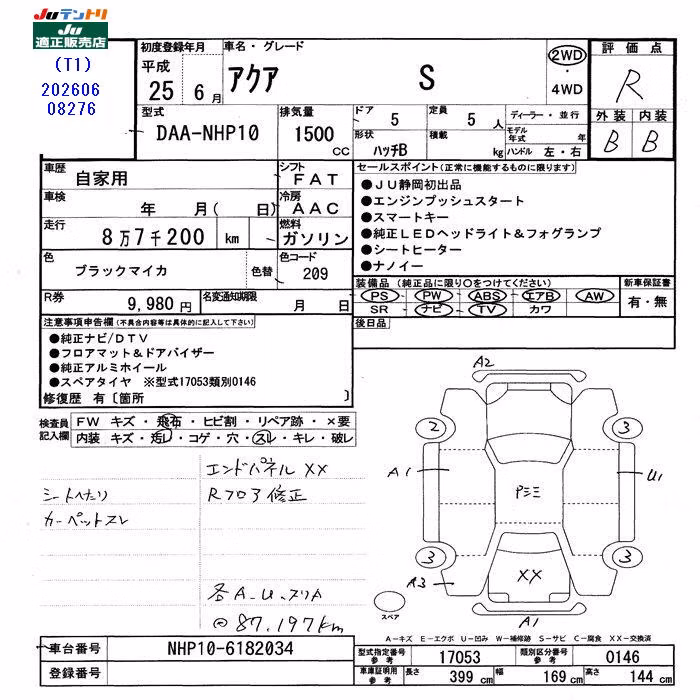 Juテントリ
Ju
適正販売店
(T1)
202606
08276
初度登録年月
平成
25年 6月
車名・グレード
アクア S
2WD
・
4WD
評価点
R
外装 内装
B B
型式
DAA-NHP10
排気量
1500
CC
ドア
5
形状
ハッチB
定員
5人
積載
kg
ディーラー・並行
モデル年式 年
ハンドル 左・右
車歴
自家用
シフト
FAT
車検
年 月( 日)
冷房
AAC
走行
8万7千200 km
燃料
ガソリン
色
ブラックマイカ
色替
色コード
209
R券
9,980円
名変通知期限
月 日
セールスポイント(正常に機能するものに限ります)
●JU静岡初出品
●エンジンプッシュスタート
●スマートキー
●純正LEDヘッドライト&フォグランプ
●シートヒーター
●ナノイー
装備品(純正品に限り○をつけてください)
PS PW ABS エアB AW
SR ナビ TV カワ
新車保証書
有・無
後日品
注意事項申告欄(不具合内容等は具体的に記入して下さい)
●純正ナビ/DTV
●フロアマット&ドアバイザー
●純正アルミホイール
●スペアタイヤ ※型式17053類別0146
修復歴 有〔箇所 〕
検査員
記入欄
FW キズ・飛石・ヒビ割・リペア跡・×要
内装 キズ・汚レ・コゲ・穴・スレ・キレ・破レ
エンドパネル XX
シートへたり
Rフロア修正
カーペットスレ
各A.U.スリA
@87.197km
A2
2
3
A1
Pミミ
U1
3
3
A3
XX
スペア
A1
A-キズ E-エクボ U-凹み W-補修跡 S-サビ C-腐食 XX-交換済
車台番号
NHP10-6182034
登録番号
型式指定番号
参考
17053
類別区分番号
参考
0146
車庫証明用
参考
長さ
399 cm
幅
169 cm
高さ
144 cm